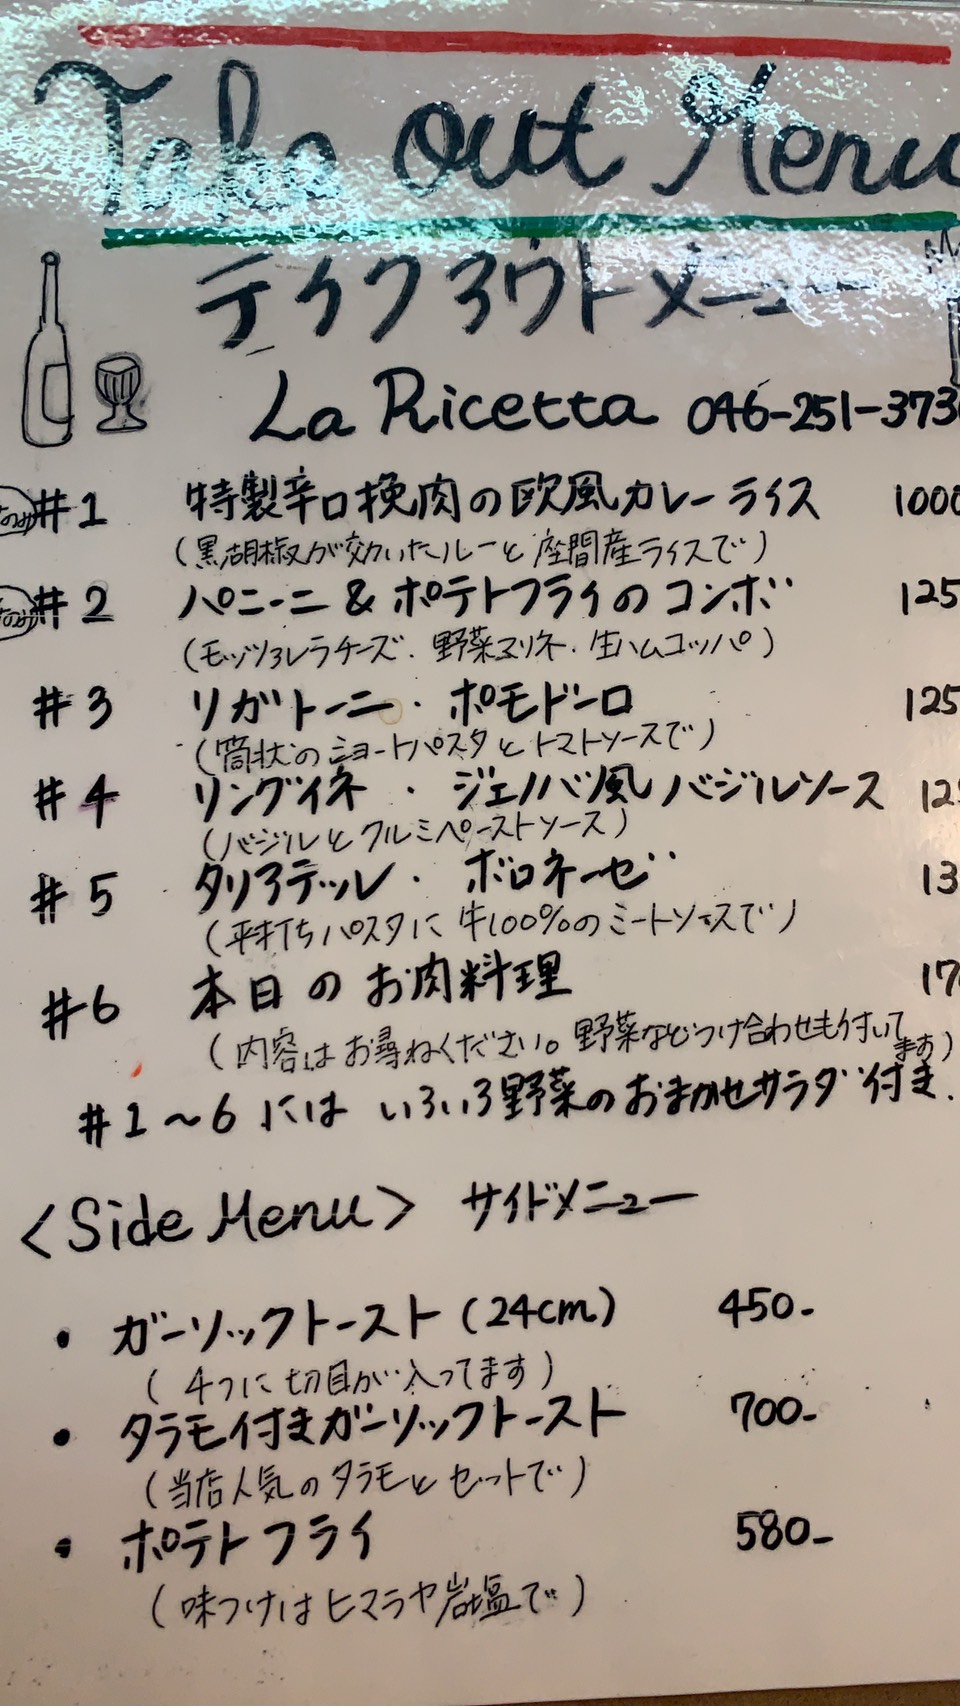 Take Out Menu
テイクアウトメニュー
La Ricetta 046-251-373
#1 特製辛口挽肉の欧風カレーライス 1000
(黒胡椒が効いたルーと座間産ライスで)
#2 パニーニ & ポテトフライのコンボ 125
(モッツァレラチーズ・野菜マリネ・生ハムコッパ)
#3 リガトーニ・ポモドーロ 125
(筒状のショートパスタとトマトソースで)
#4 リングイネ・ジェノバ風バジルソース 125
(バジルとクルミペーストソース)
#5 タリアテッレ・ボロネーゼ 13
(平打ちパスタに牛100%のミートソースで)
#6 本日のお肉料理 17
(内容はお尋ねください。野菜などつけ合わせも付いてます)
#1〜6には いろいろ野菜のおまかせサラダ付き.
<Side Menu> サイドメニュー
・ガーリックトースト(24cm) 450-
(4つに切目が入ってます)
・タラモ付きガーリックトースト 700-
(当店人気のタラモとセットで)
・ポテトフライ 580-
(味つけはヒマラヤ岩塩で)